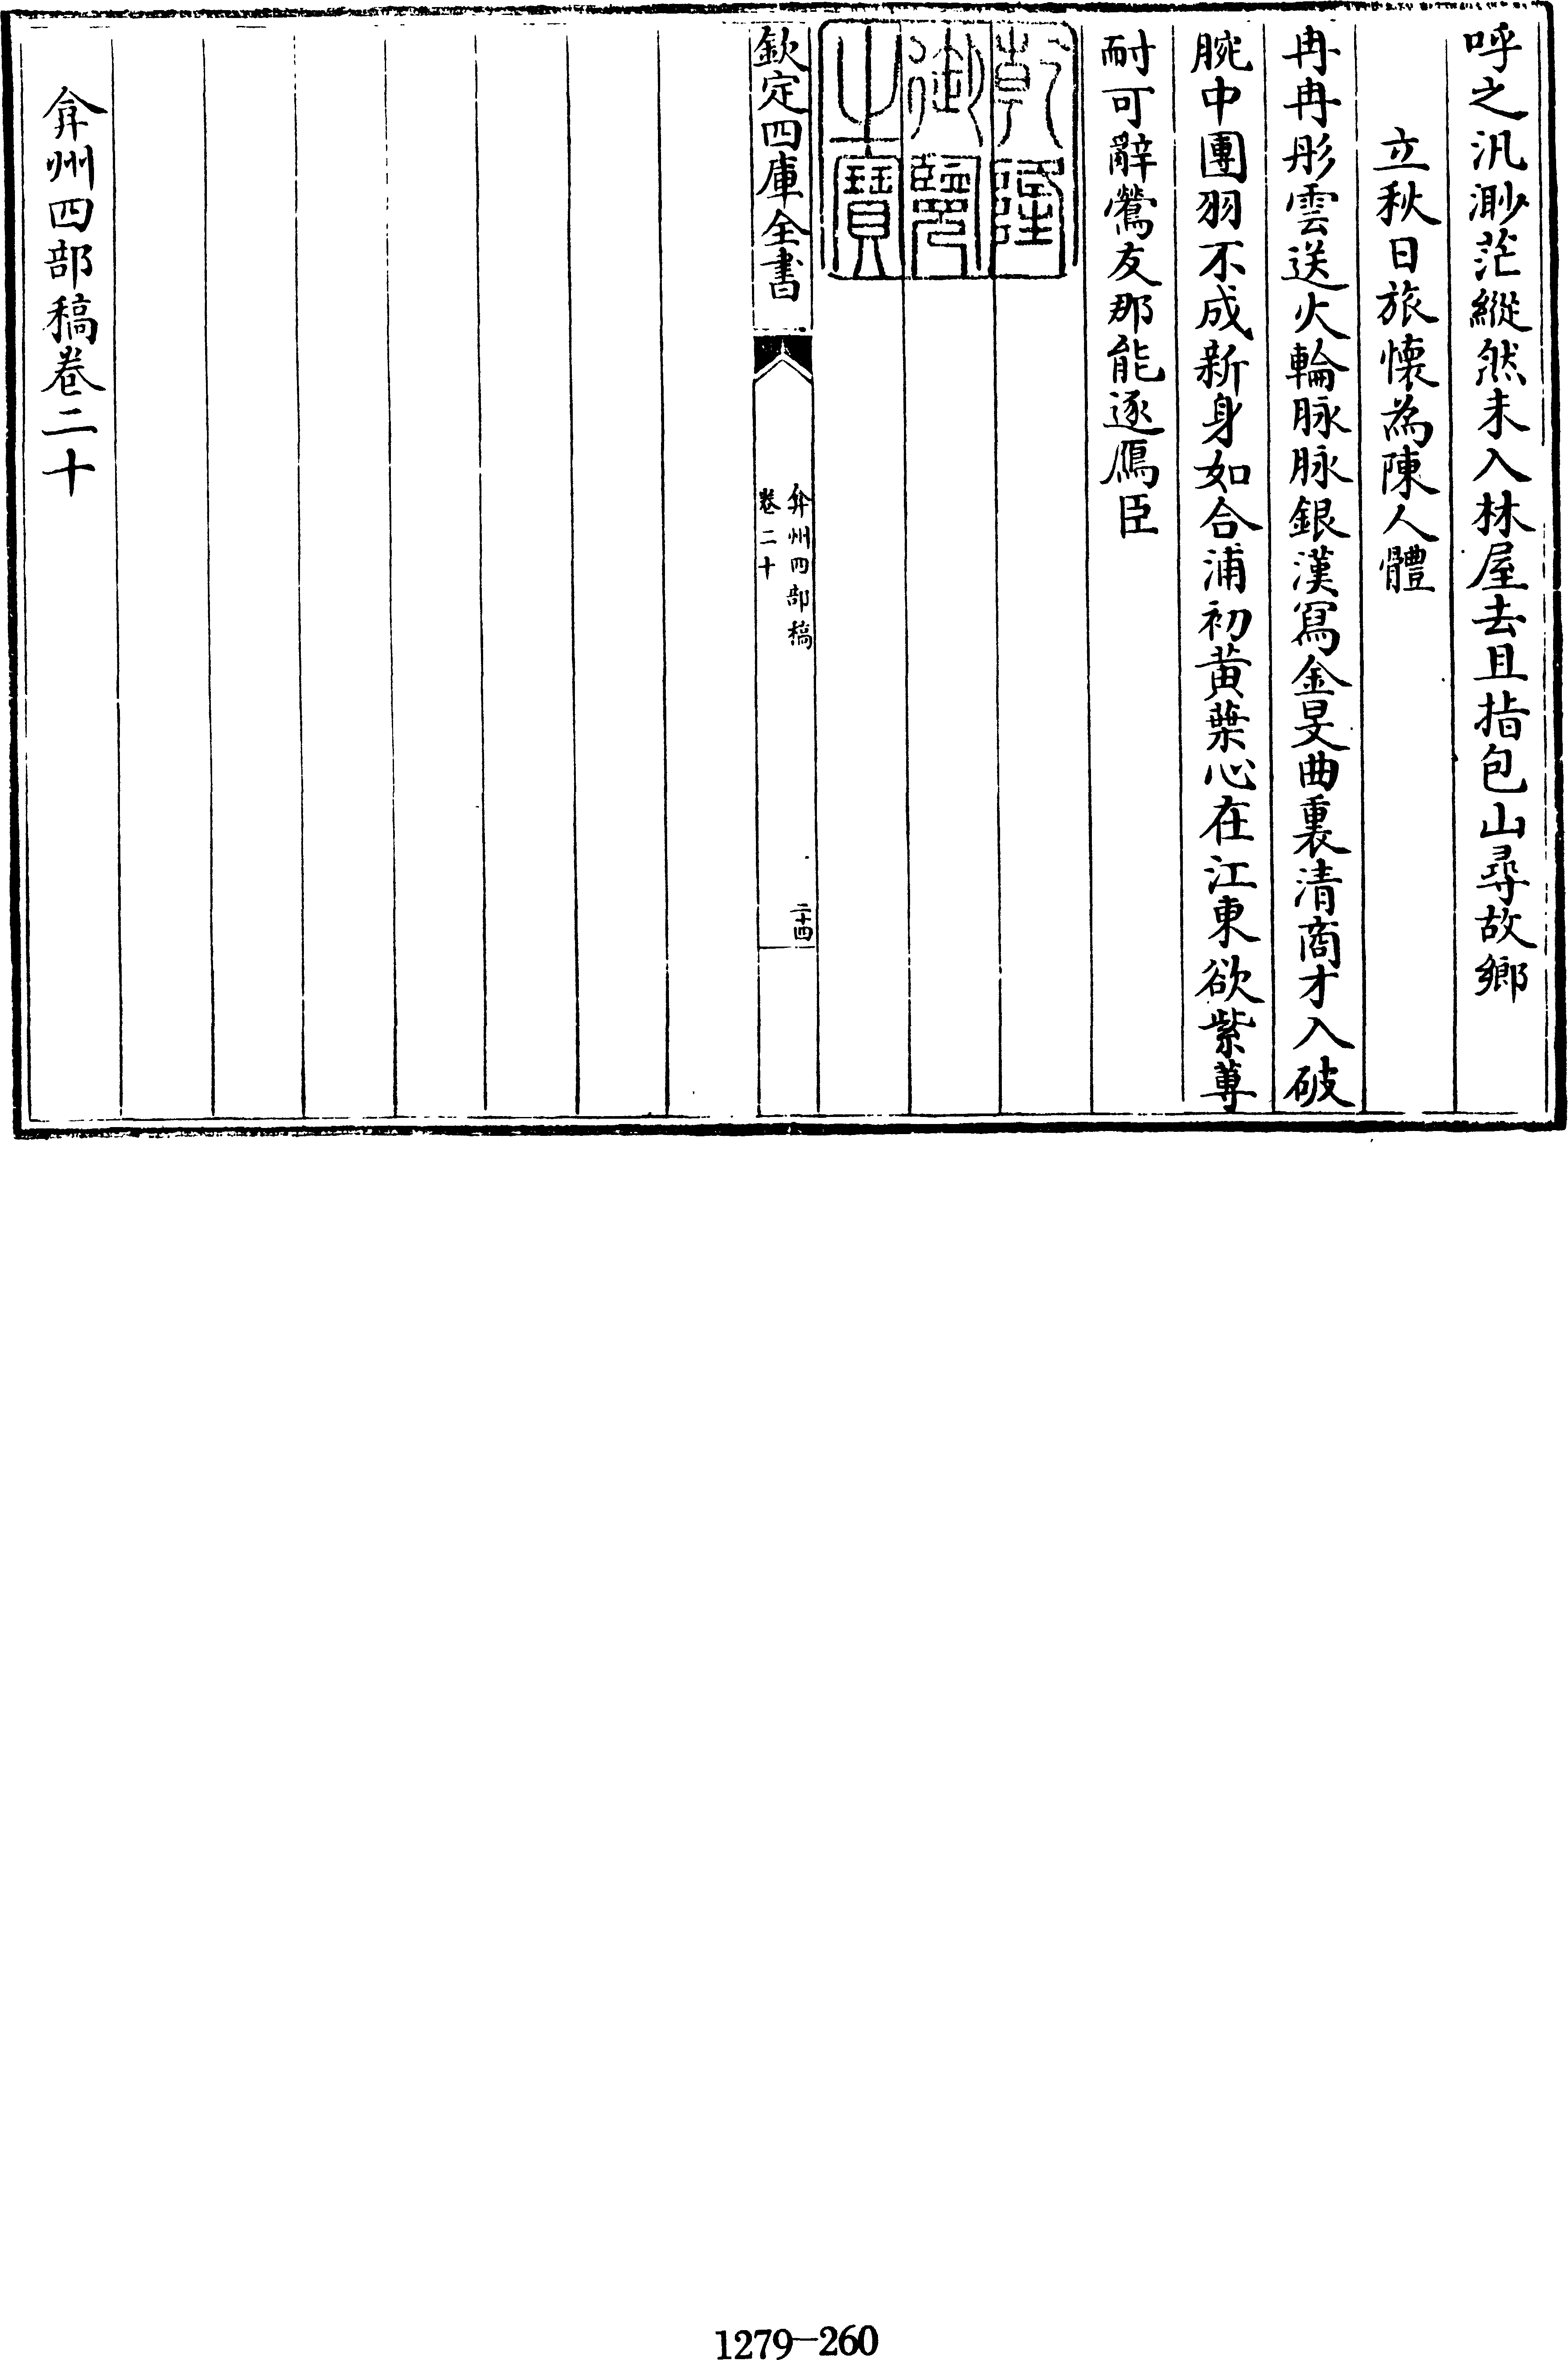 呼之汎渺茫縱然未入林屋去且指包山尋故鄉
立秋日旅懷為陳人體
冉冉彤雲送火輪脉脉銀漢寫金旻曲裏清商才入破
腕中團羽不成新身如合浦初黃葉心在江東欲紫蓴
耐可辭鶯友那能逐鴈臣
乾隆
御覽
之寶
欽定四庫全書
弇州四部稿
卷二十
二十四
弇州四部稿卷二十
1279-260